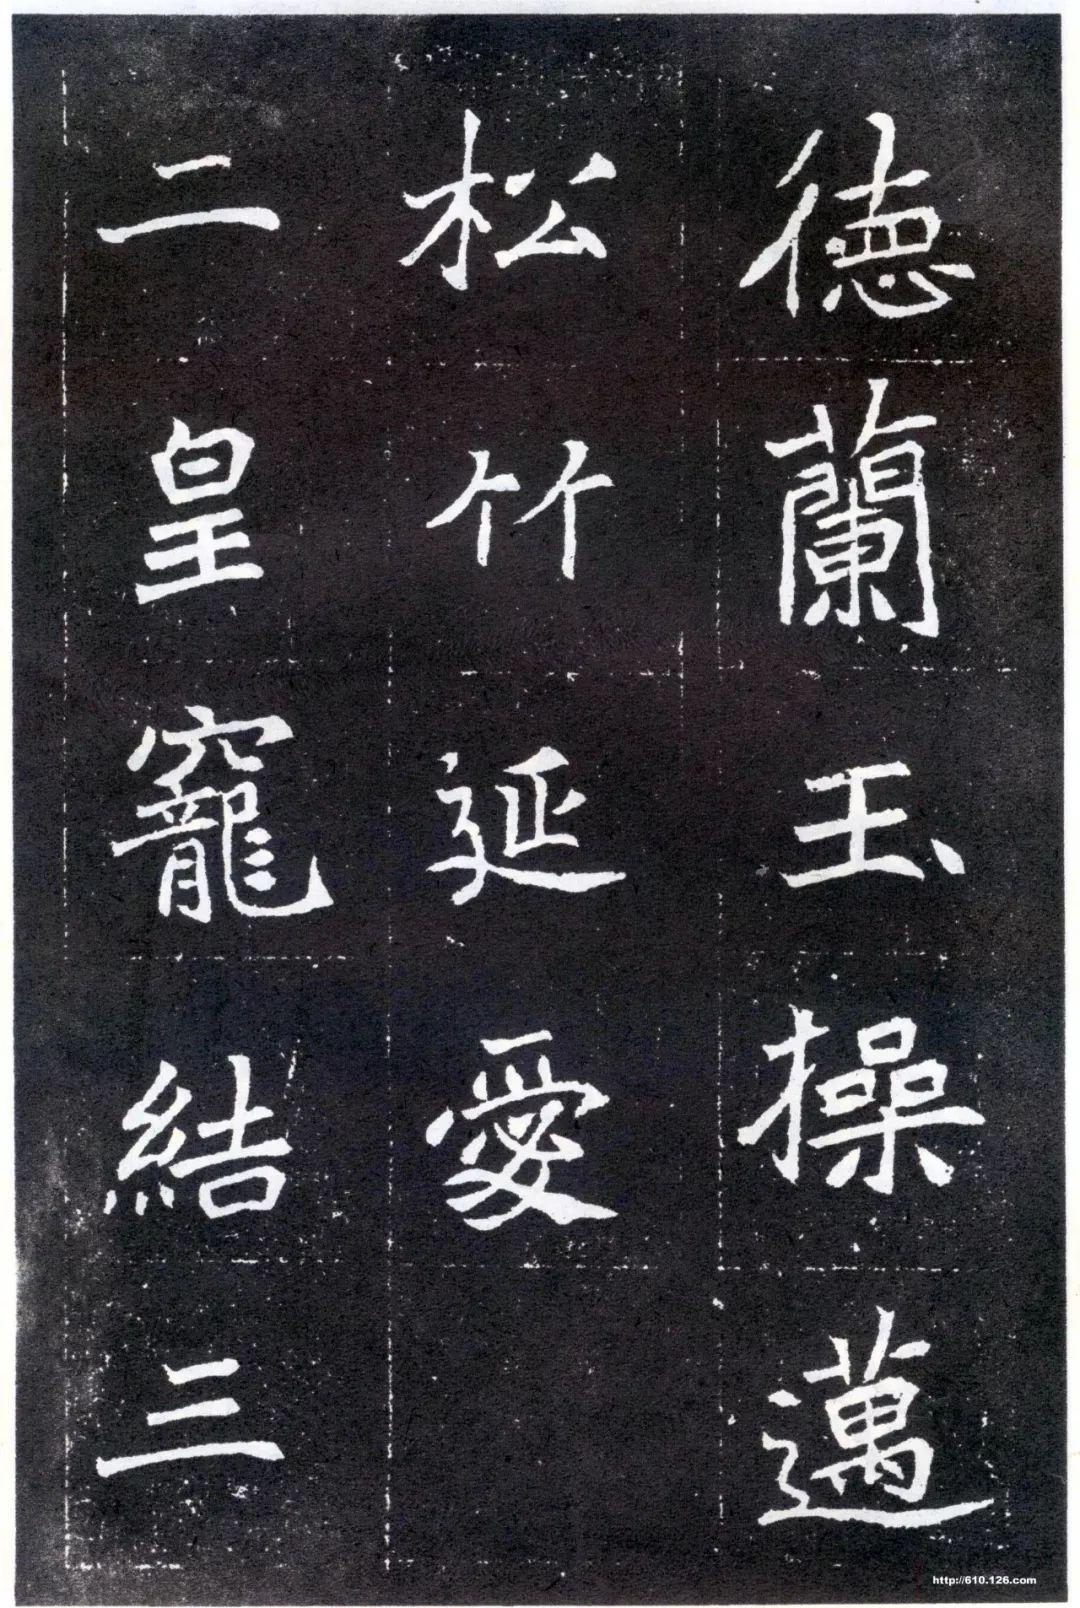 德蘭玉操邁
松竹延愛
二皇寵結三
http://610.126.com